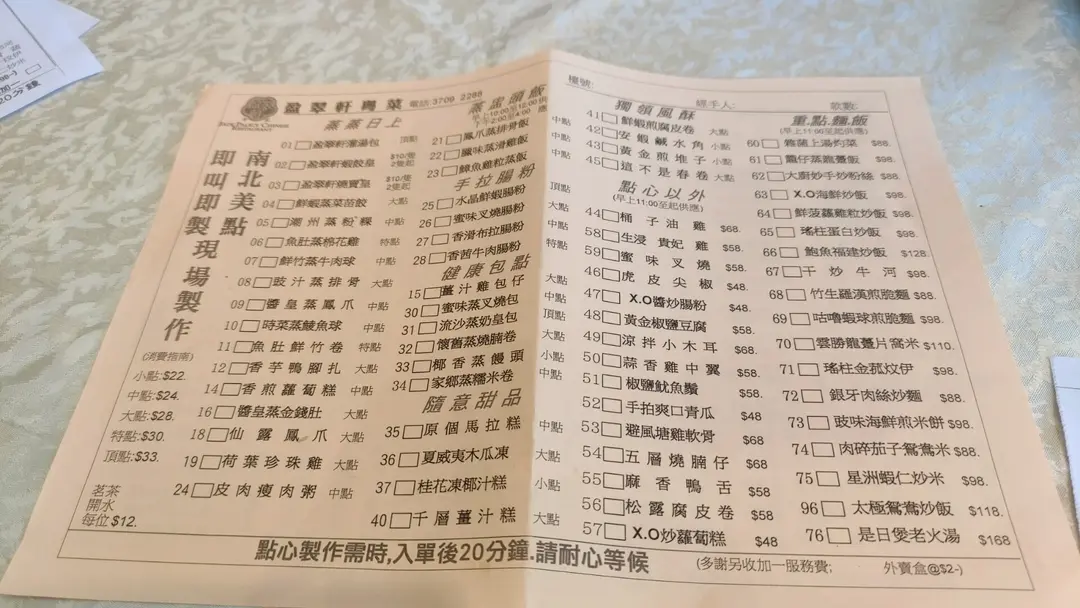 盈翠軒粵菜 電話:3709 2288
蒸蒸日上
南北美點
即叫即製
現場製作
(消費指南)
小點:$22.
中點:$24.
大點:$28.
特點:$30.
頂點:$33.
茗茶
開水
每位$12.
01 盈翠軒灌湯包 頂點
02 盈翠軒蝦餃皇 $10/隻 2隻起
03 盈翠軒燒賣皇 $10/隻 2隻起
04 鮮蝦蒸菜苗餃 大點
05 潮州蒸粉粿 中點
06 魚肚蒸棉花雞 特點
07 鮮竹蒸牛肉球 中點
08 豉汁蒸排骨 大點
09 醬皇蒸鳳爪 中點
10 時菜蒸鯪魚球 中點
11 魚肚鮮竹卷 特點
12 香芋鴨腳扎 大點
14 香煎蘿蔔糕 中點
16 醬皇蒸金錢肚 大點
18 仙露鳳爪 大點
19 荷葉珍珠雞 大點
24 皮肉瘦肉粥 中點
蒸盅頭飯
21 鳳爪蒸排骨飯
22 臘味蒸滑雞飯
23 鱆魚雞粒蒸飯
手拉腸粉
25 水晶鮮蝦腸粉
26 蜜味叉燒腸粉
27 香滑布拉腸粉
28 香茜牛肉腸粉
健康包點
15 薑汁雞包仔
30 蜜味蒸叉燒包
31 流沙蒸奶皇包
32 懷舊蒸燒腩卷
33 椰香蒸饅頭
34 家鄉蒸糯米卷
隨意甜品
35 原個馬拉糕
36 夏威夷木瓜凍
37 桂花凍椰汁糕
40 千層薑汁糕
檯號: 經手人: 款數:
獨領風酥
41 鮮蝦煎腐皮卷 大點
42 安蝦鹹水角 小點
43 黃金煎堆子 小點
45 這不是春卷 大點
點心以外
(早上11:00至起供應)
44 桶子油雞 $68.
58 生浸貴妃雞 $58.
59 蜜味叉燒 $58.
46 虎皮尖椒 $48.
47 X.O醬炒腸粉 $48.
48 黃金椒鹽豆腐 $58.
49 涼拌小木耳 $68.
50 蒜香雞中翼 $58.
51 椒鹽魷魚鬚 $58.
52 手拍爽口青瓜 $48
53 避風塘雞軟骨 $68
54 五層燒腩仔 $68
55 麻香鴨舌 $58
56 松露腐皮卷 $58
57 X.O炒蘿蔔糕 $48
重點麵飯
(早上11:00至起供應)
60 上湯灼菜 $88.
61 仔蒸飯 $88.
62 大廚炒手炒粉絲 $88.
63 X.O海鮮炒飯 $98.
64 鮮菠蘿雞粒炒飯 $98.
65 瑤柱蛋白炒飯 $98.
66 鮑魚福建炒飯 $128
67 干炒牛河 $98.
68 竹生羅漢煎脆麵 $88.
69 咕嚕蝦球煎脆麵 $98.
70 片窩米 $110.
71 瑤柱金菰炆伊 $98.
72 銀牙肉絲炒麵 $88.
73 豉味海鮮煎米餅 $98.
74 肉碎茄子鴛鴦米 $88.
75 星洲蝦仁炒米 $98.
96 太極鴛鴦炒飯 $118.
76 是日煲老火湯 $168
點心製作需時,入單後20分鐘.請耐心等候
(多謝另收加一服務費; 外賣盒@$2-)